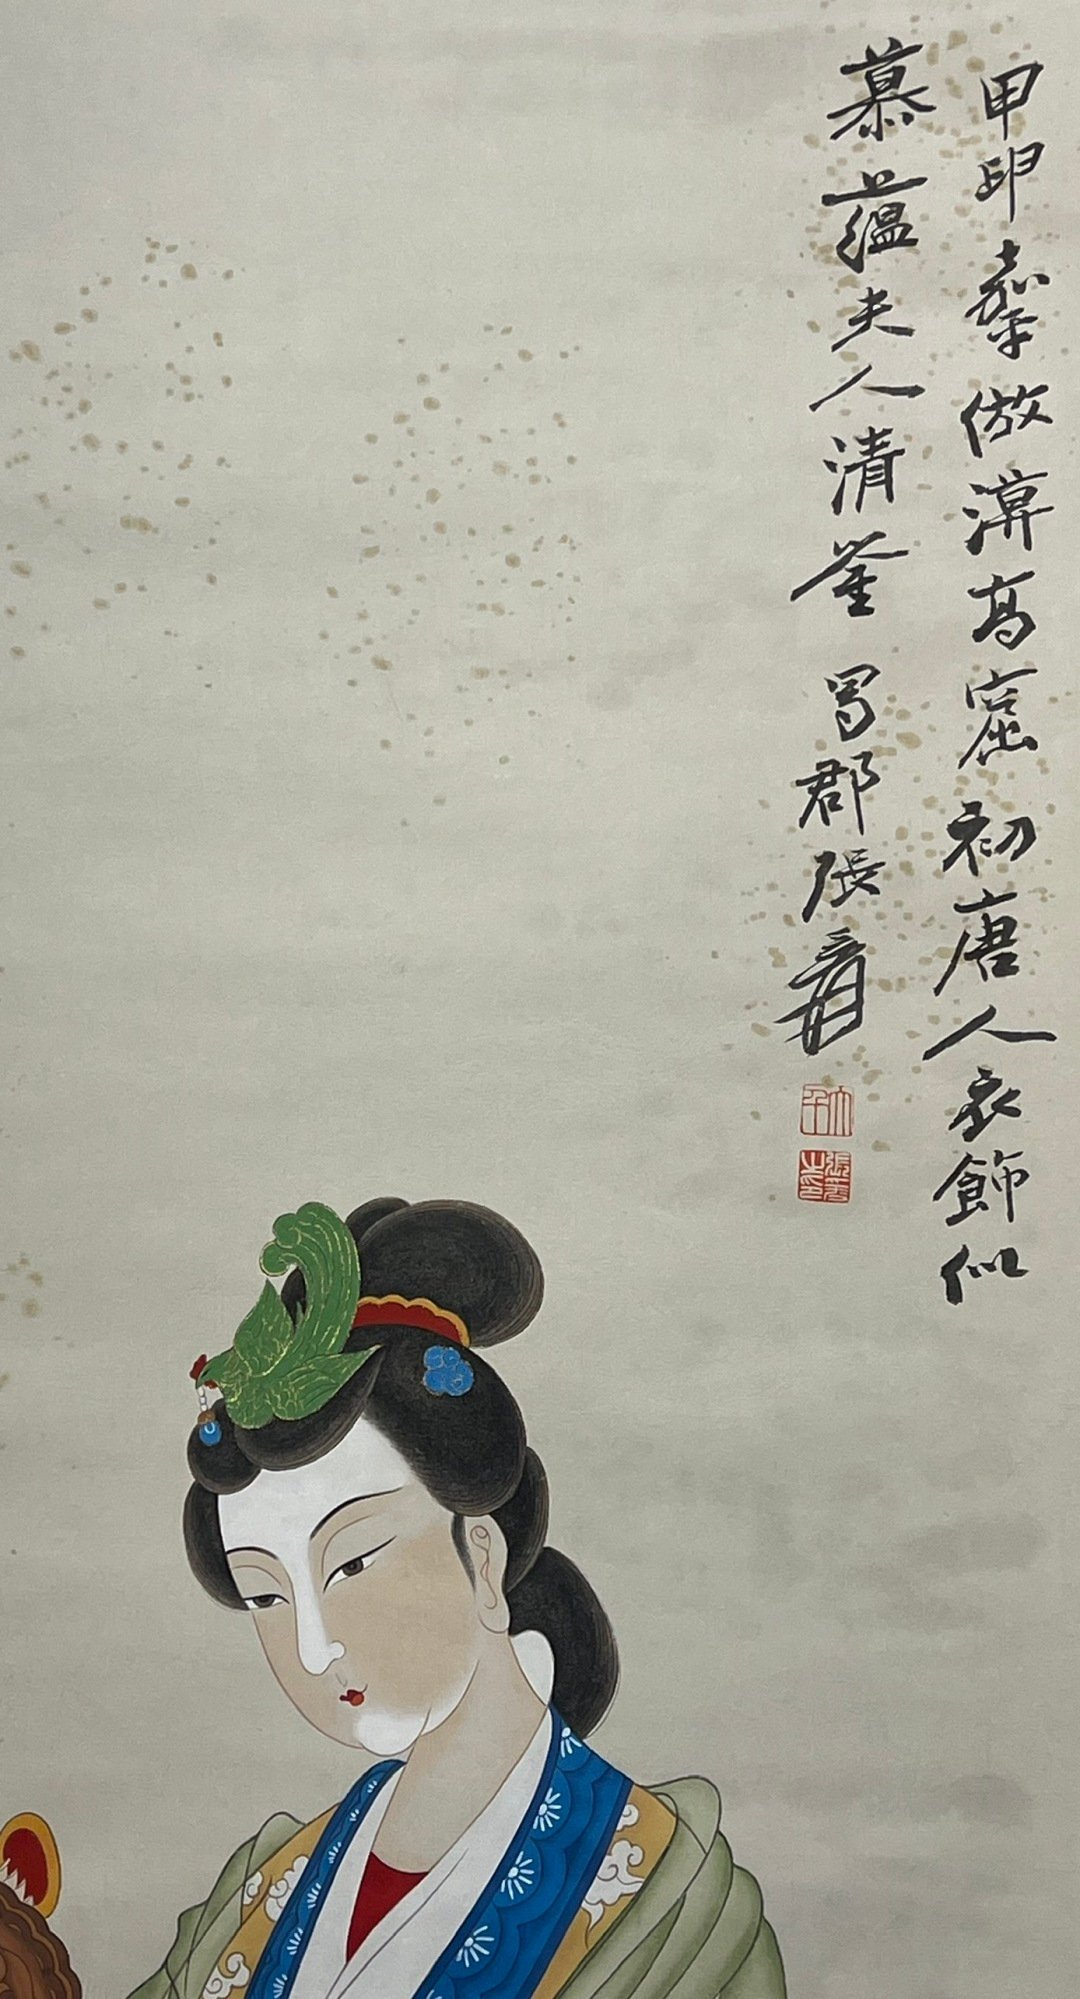 甲申嘉平倣漠高窟初唐人衣飾似
慕蘊夫人清鑒 蜀郡張爰
大千
張爰之印